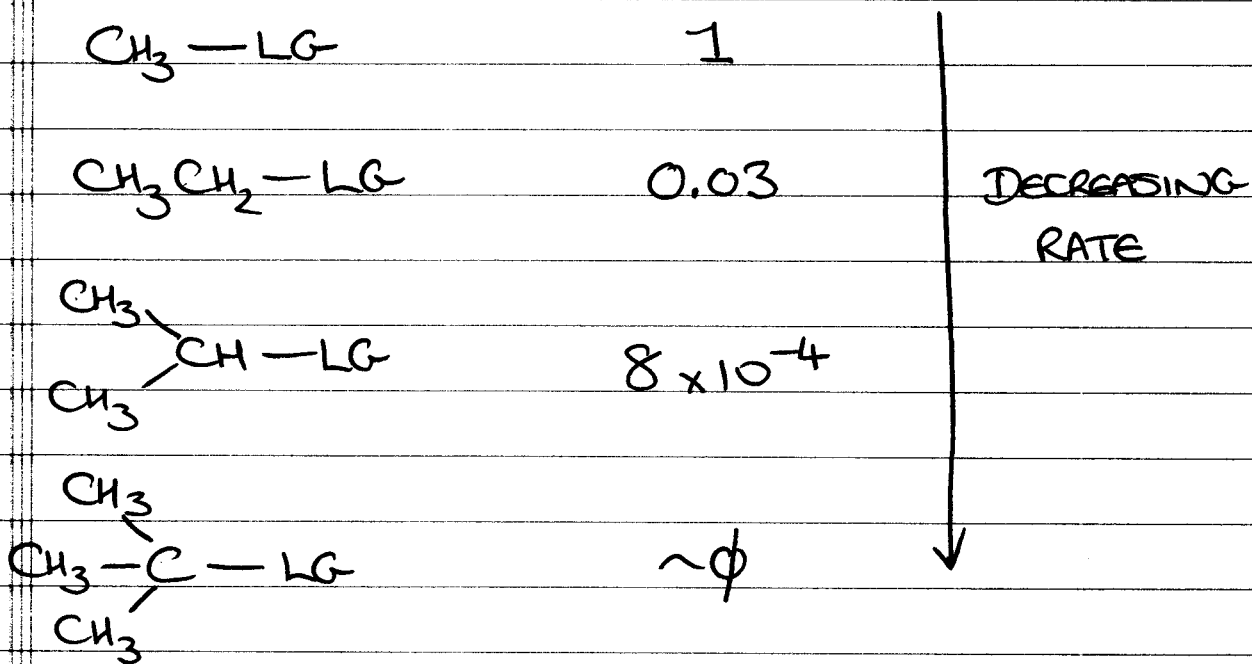 CH₃—LG 1
CH₃CH₂—LG 0.03 DECREASING
RATE
CH₃
CH—LG 8 x 10⁻⁴
CH₃
CH₃
CH₃—C—LG ~ϕ
CH₃